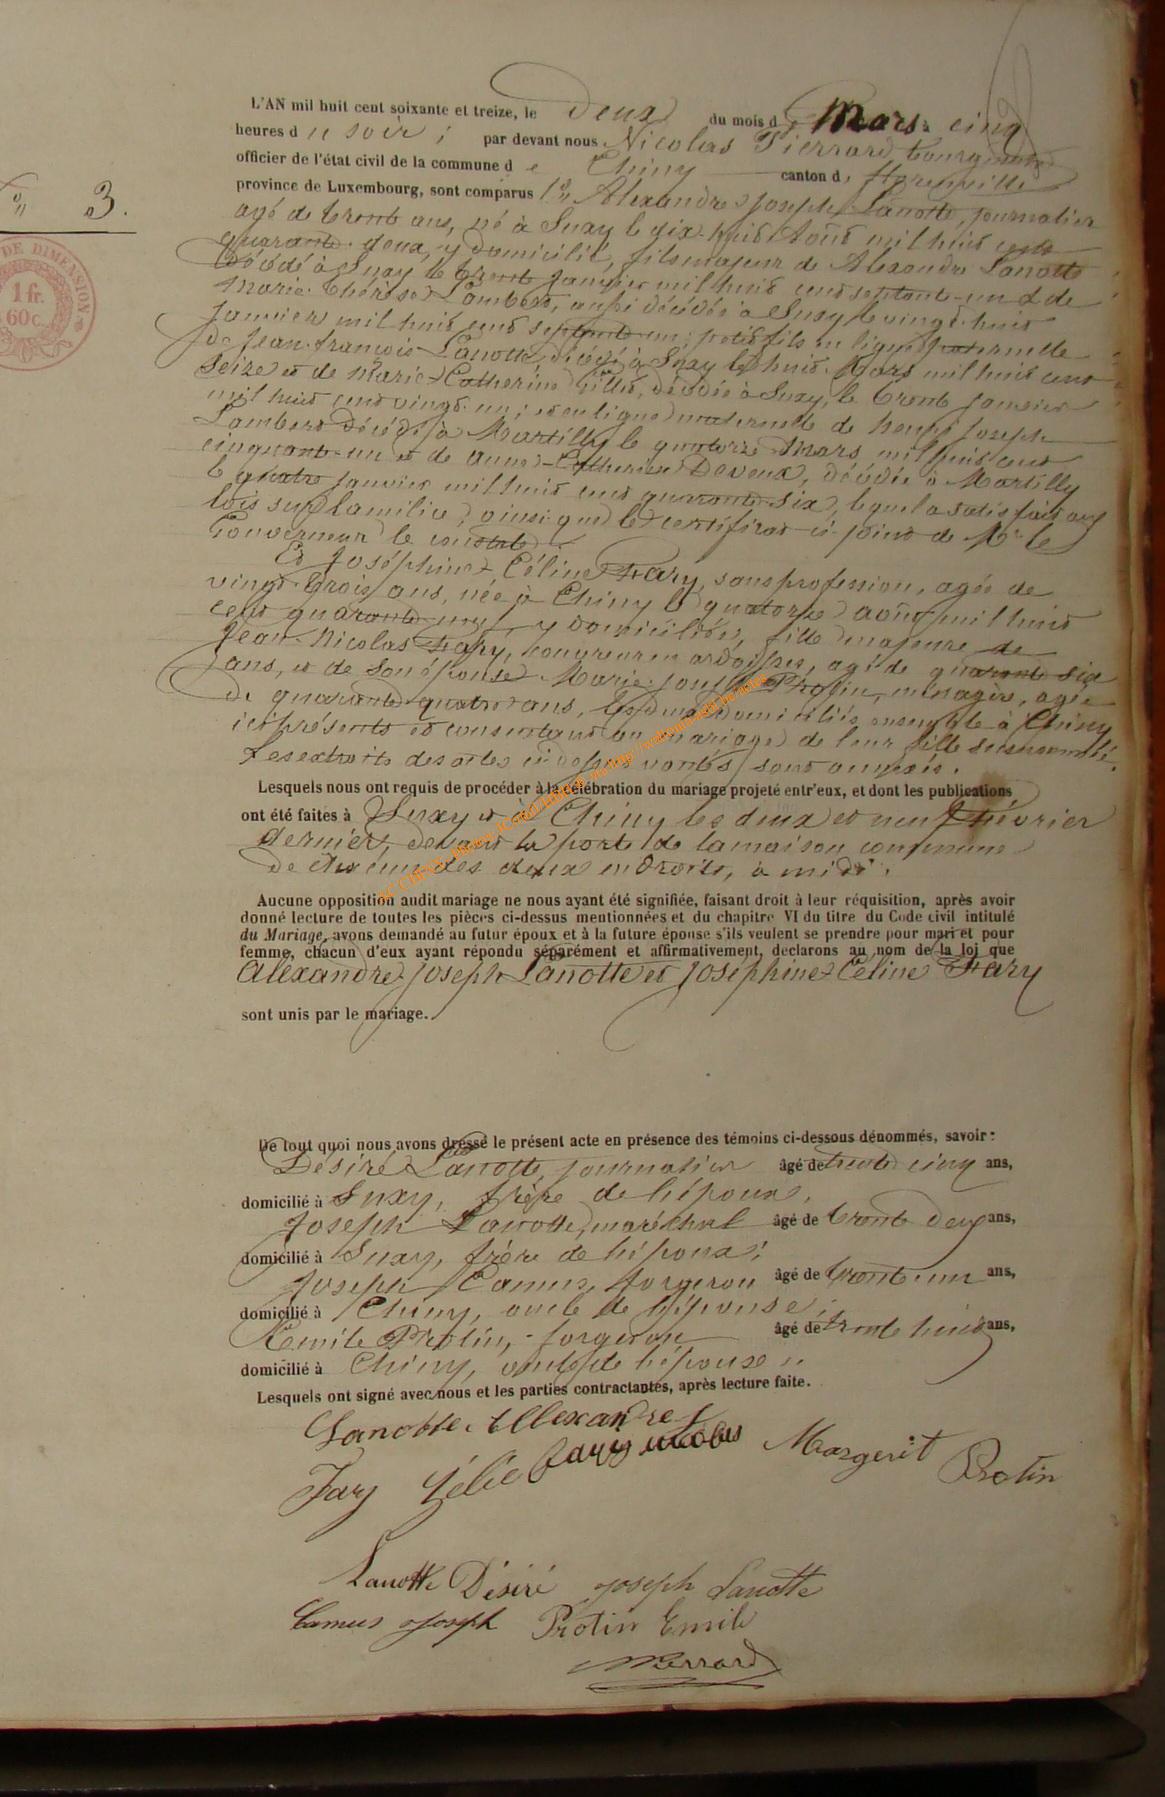 L'AN mil huit cent soixante et treize, le deux du mois de Mars à cinq
heures du soir, par devant nous Nicolas Pierrard, bourgmestre
officier de l'état civil de la commune de Chiny canton de Florenville
province de Luxembourg, sont comparus 1° Alexandre Joseph Lanotte, journalier
agé de trente ans, né à Suxy le dix huit Août mil huit cent
quarante deux, y domicilié, fils majeur de Alexandre Lanotte
décédé à Suxy le trente Janvier mil huit cent septante-un & de
Marie Thérèse Lambert, aussi décédée à Suxy le vingt-huit
Janvier mil huit cent septante un; petit fils en ligne paternelle
de Jean-françois Lanotte décédé à Suxy le huit Mars mil huit cent
seize et de Marie Catherine Gillet, décédée à Suxy, le trente Janvier
mil huit cent vingt-un; et en ligne maternelle de henri Joseph
Lambert décédé à Martilly le quatorze Mars mil huit cent
cinquante-un et de Anne-Catherine Deveux, décédée à Martilly
le quatre Janvier mil huit cent quarante six, lequel a satisfait aux
lois sur la milice, ainsi que le certificat ci-joint de Mr le
Gouverneur le constate.
Et Joséphine Céline Fary, sans profession, agée de
vingt-trois ans, née à Chiny le quatorze août mil huit
cent quarante y domiciliée, fille majeure de
Jean-Nicolas Fary, couvreur en ardoises, agé de quarante six
ans, et de son épouse Marie Joseph Protin, ménagère, agée
de quarante quatre ans, domiciliés ensemble à Chiny
ici présents et consentant au mariage de leur fille susnommée.
Les extraits des actes ci dessus vantés sont annexés.
Lesquels nous ont requis de procéder à la célébration du mariage projeté entr'eux, et dont les publications
ont été faites à Suxy et à Chiny les deux et neuf Février
dernier, devant la porte de la maison commune
de chacun des deux endroits, à midi.
Aucune opposition audit mariage ne nous ayant été signifiée, faisant droit à leur réquisition, après avoir
donné lecture de toutes les pièces ci-dessus mentionnées et du chapitre VI du titre du Code civil intitulé
du Mariage, avons demandé au futur époux et à la future épouse s'ils veulent se prendre pour mari et pour
femme, chacun d'eux ayant répondu séparément et affirmativement, declarons au nom de la loi que
Alexandre Joseph Lanotte et Joséphine Céline Fary
sont unis par le mariage.
De tout quoi nous avons dressé le présent acte en présence des témoins ci-dessous dénommés, savoir:
Désiré Lanotte, journalier âgé de trente cinq ans,
domicilié à Suxy, frère de l'époux,
Joseph Lanotte, maréchal âgé de trente deux ans,
domicilié à Suxy, frère de l'époux;
Joseph Camus, forgeron âgé de trente un ans,
domicilié à Chiny, oncle de l'épouse;
Emile Protin, forgeron âgé de trente huit ans,
domicilié à Chiny, oncle de l'épouse
Lesquels ont signé avec nous et les parties contractantes, après lecture faite.
Lanotte Allexandre
Fary nicolas Margerit Protin
Fary Célie
Lanotte Désiré Joseph Lanotte
Camus Joseph Protin Emile
Pierrard
3.
DE DIMENSION
1 fr.
60 c.